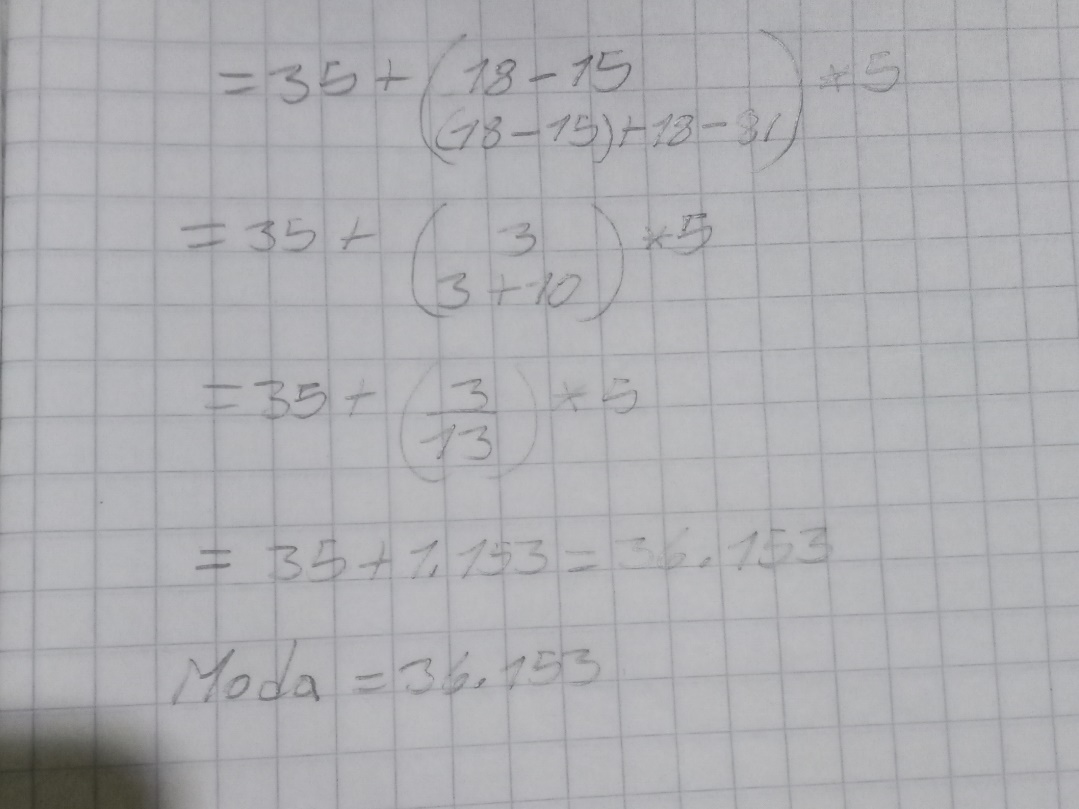 = 35 + ( 18 - 15
(18 - 15) + 18 - 8 ) * 5
= 35 + ( 3
3 + 10 ) * 5
= 35 + ( 3
13 ) * 5
= 35 + 1.153 = 36.153
Moda = 36.153